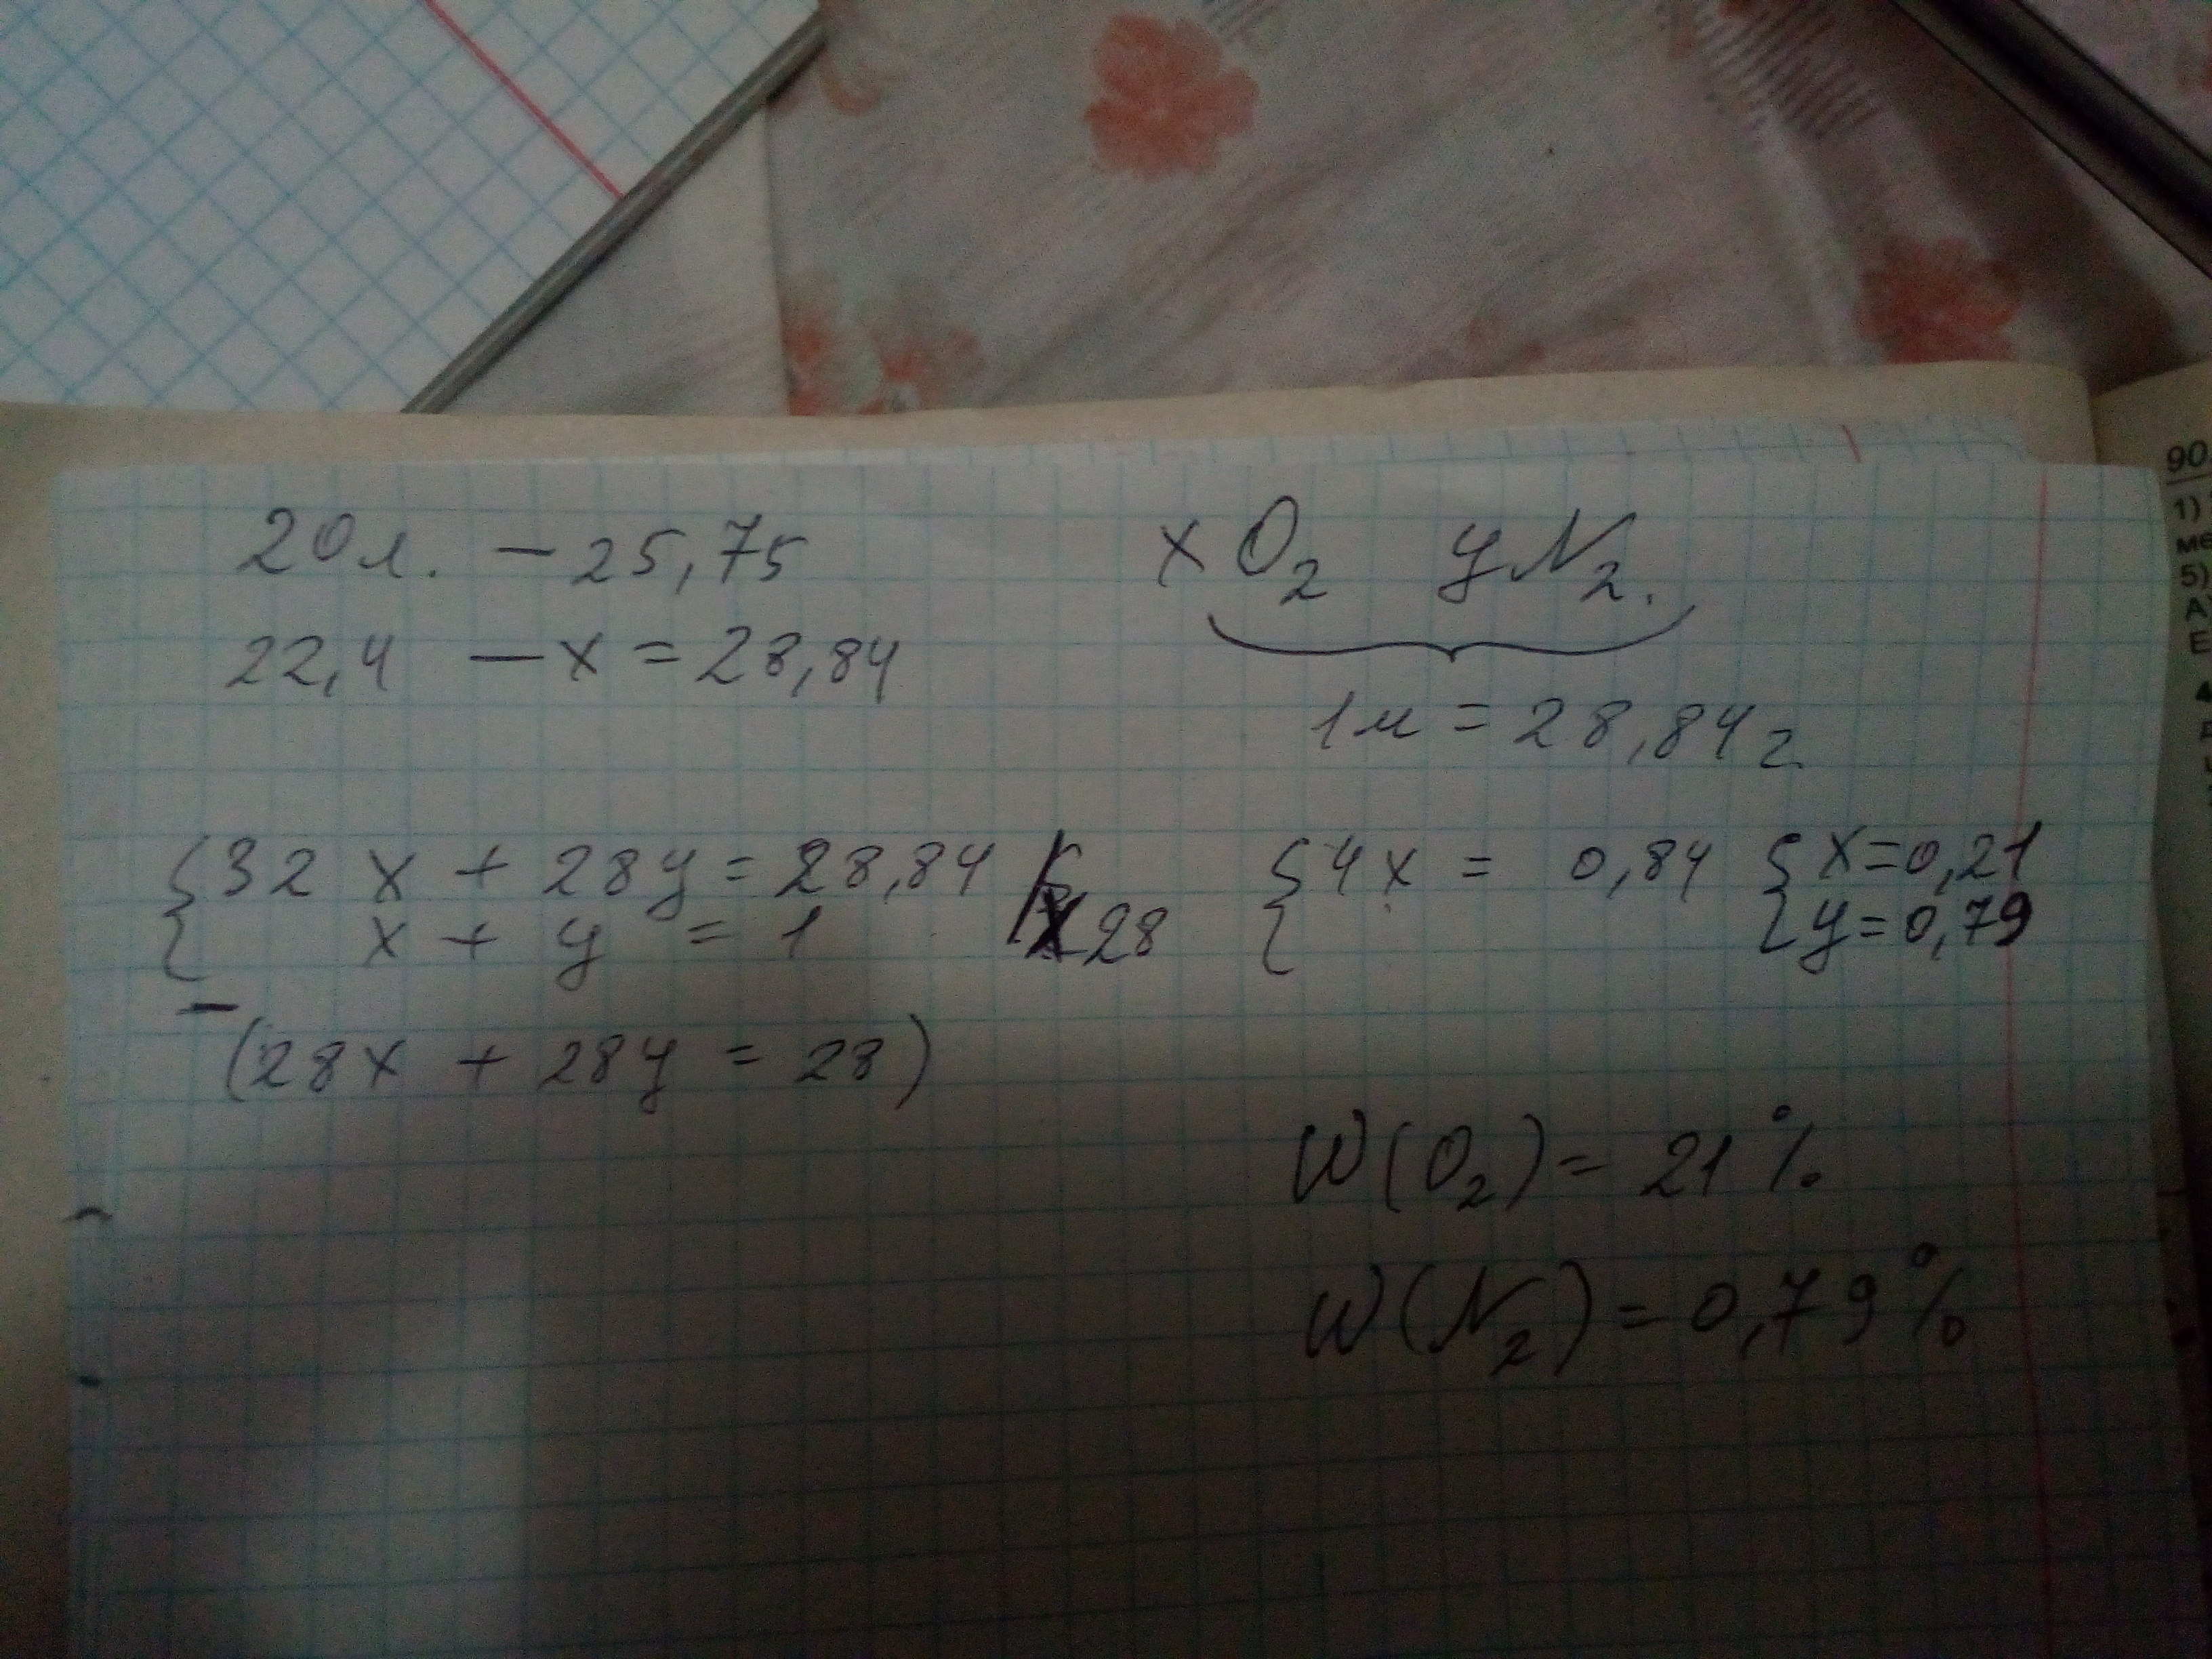 20 л. – 25,75
22,4 – x = 28,84
x O₂ y N₂.
1м = 28,84 г
{32 x + 28y = 28,84
x + y = 1 | x28
– (28x + 28y = 28)
{4x = 0,84
{x = 0,21
y = 0,79
W(O₂) = 21%
W(N₂) = 0,79%
90
1)
ме
5)
Е